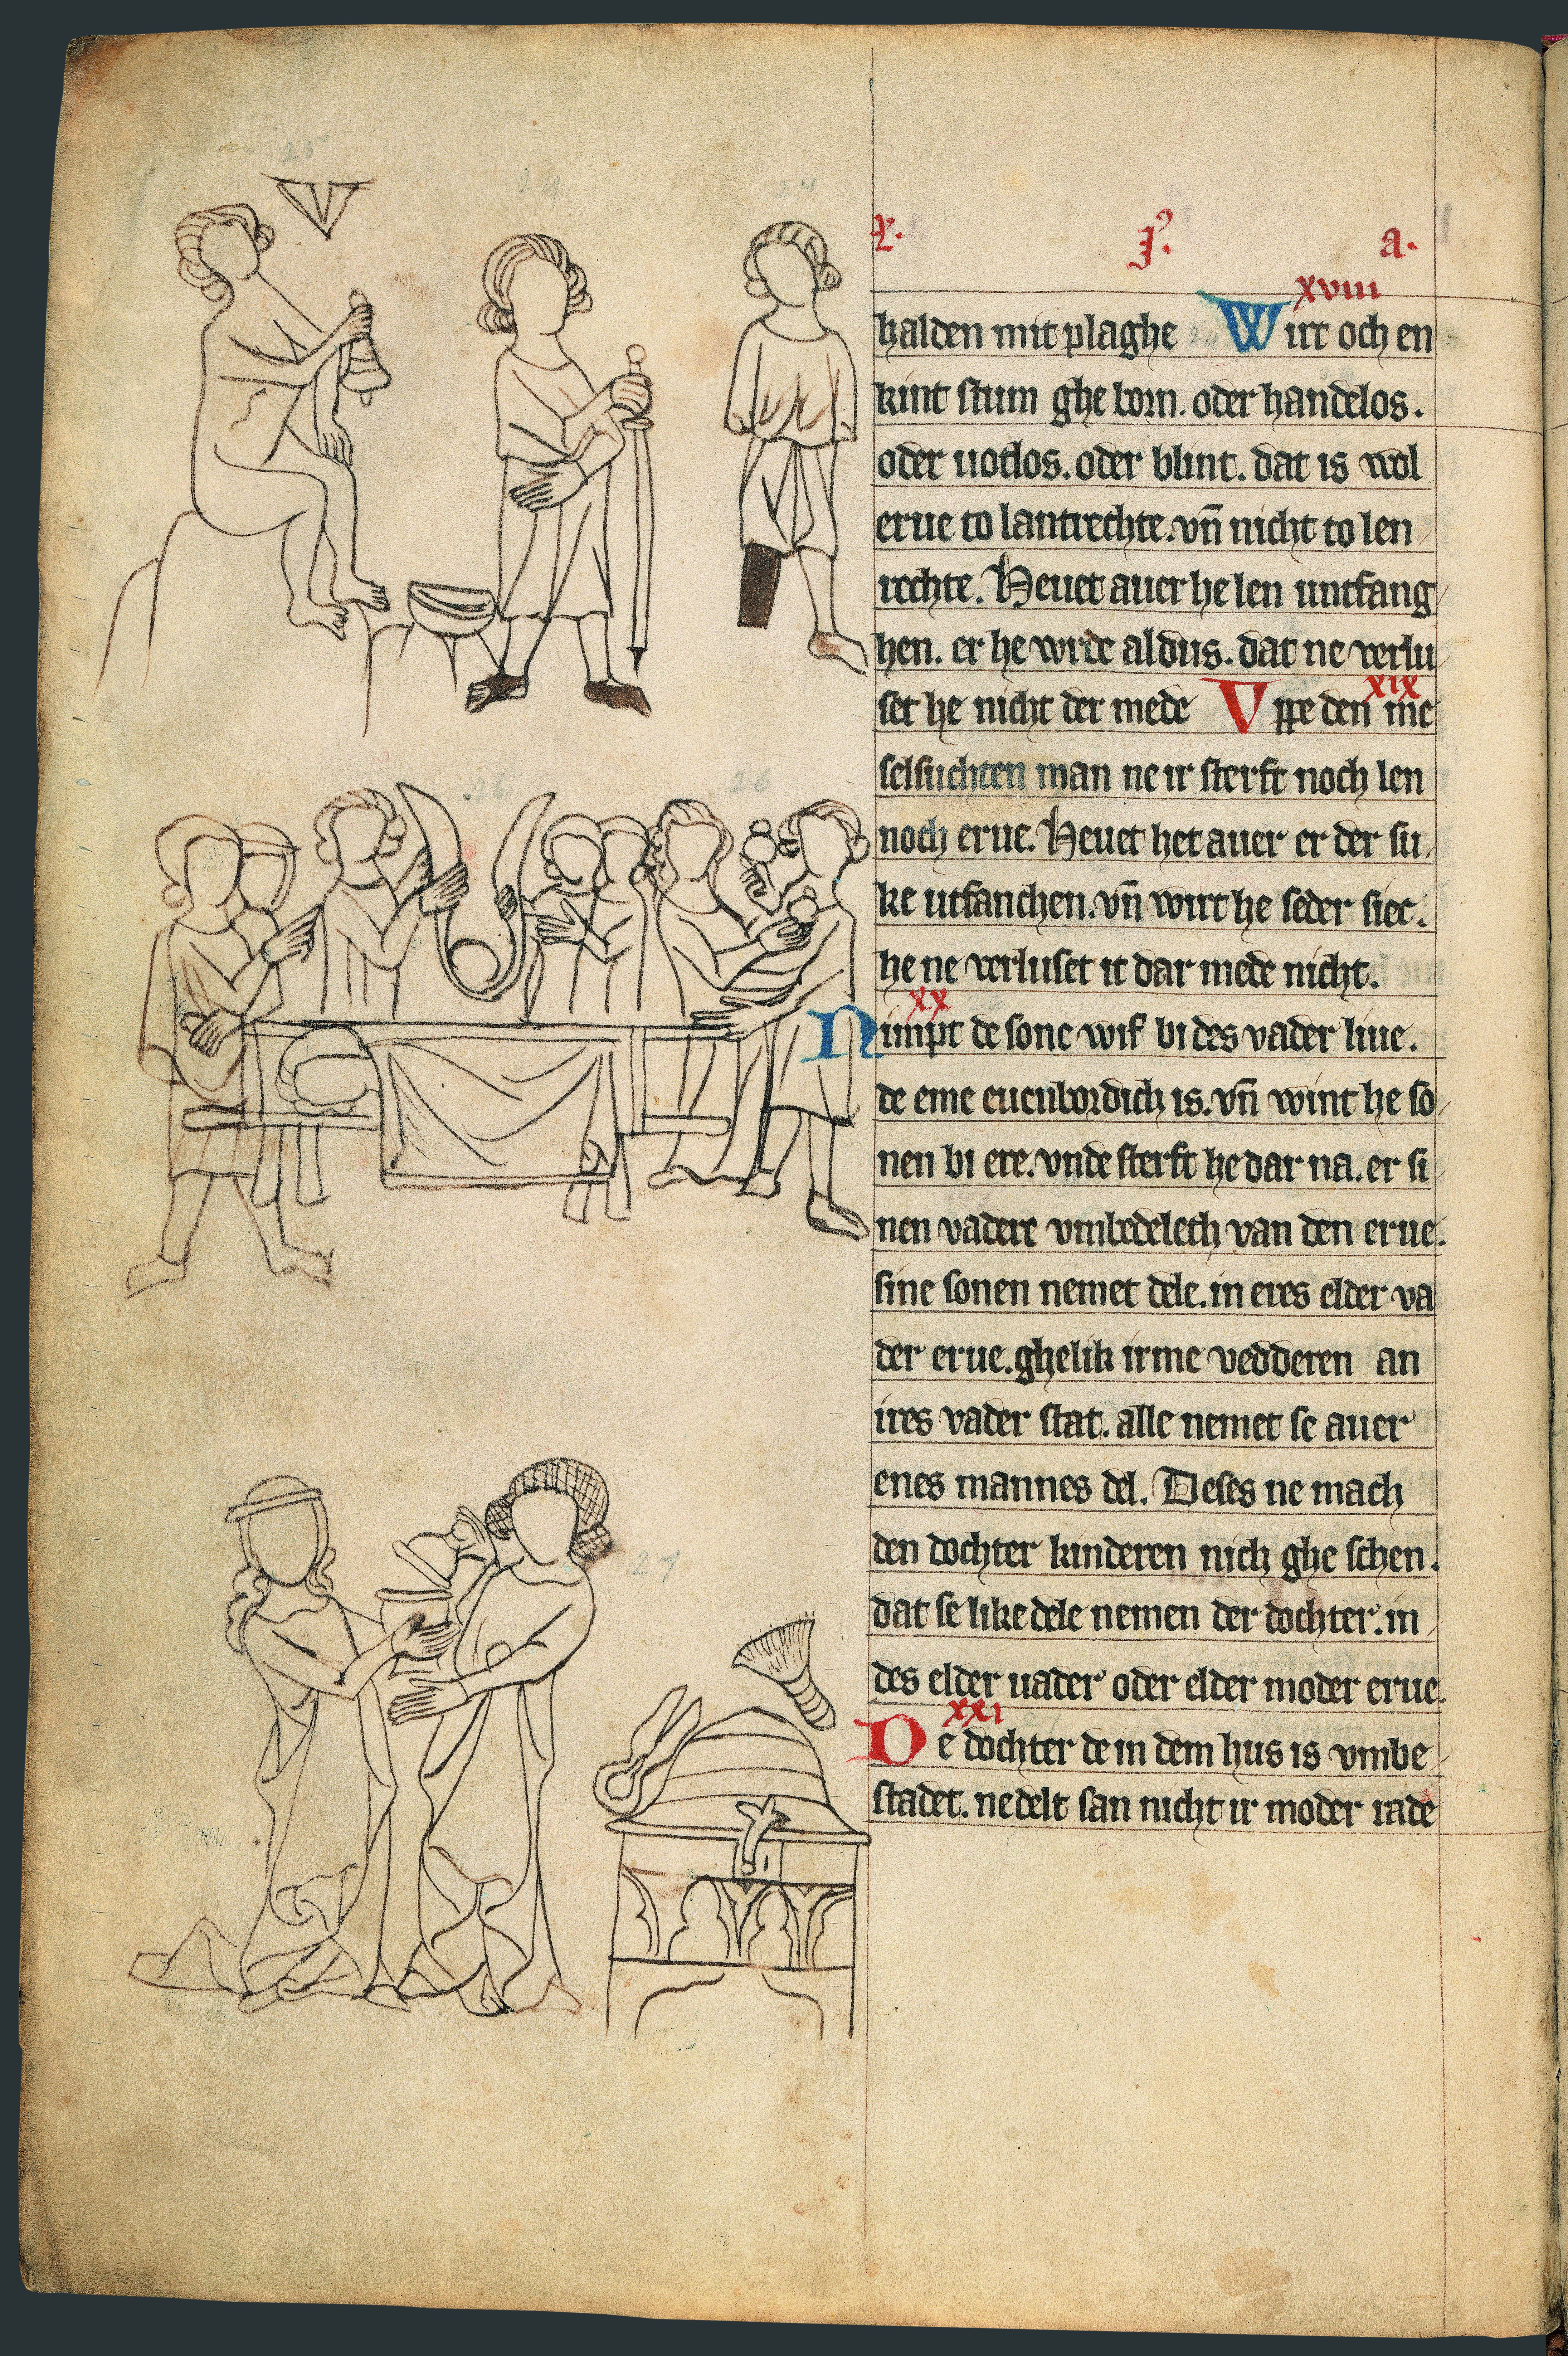 25 24 24
V
L. j⁹. a.
xviii
halden mit plaghe Wirt och en
kint stum ghe born. oder handelos.
oder uotlos. oder blint. dat is wol
erue to lantrechte. vn̄ nicht to len
rechte. Heuet auer he len untfang
hen. er he wrde aldus. dat ne verlu
set he nicht der mede Vppe den me
xix
selsuchten man ne ir sterft noch len
noch erue. Heuet het auer er der su
ke utfanchen. vn̄ wirt he seder siec.
he ne verluset it dar mede nicht.
xx
Nimpt de sone wif bi des vader liue.
de eme euenbordich is. vn̄ wint he so
nen bi ere. vnde sterft he dar na. er si
nen vadere vmbedeleth van den erue.
sine sonen nemet dele. in eres elder va
der erue. ghelik irme vedderen an
ires vader stat. alle nemet se auer
enes mannes del. Deses ne mach
den dochter kinderen nich ghe schen.
dat se like dele nemen der dochter. in
des elder uader oder elder moder erue.
xxi
De dochter de in dem hus is vmbe
stadet. ne delt san nicht ir moder rade
26 26
27